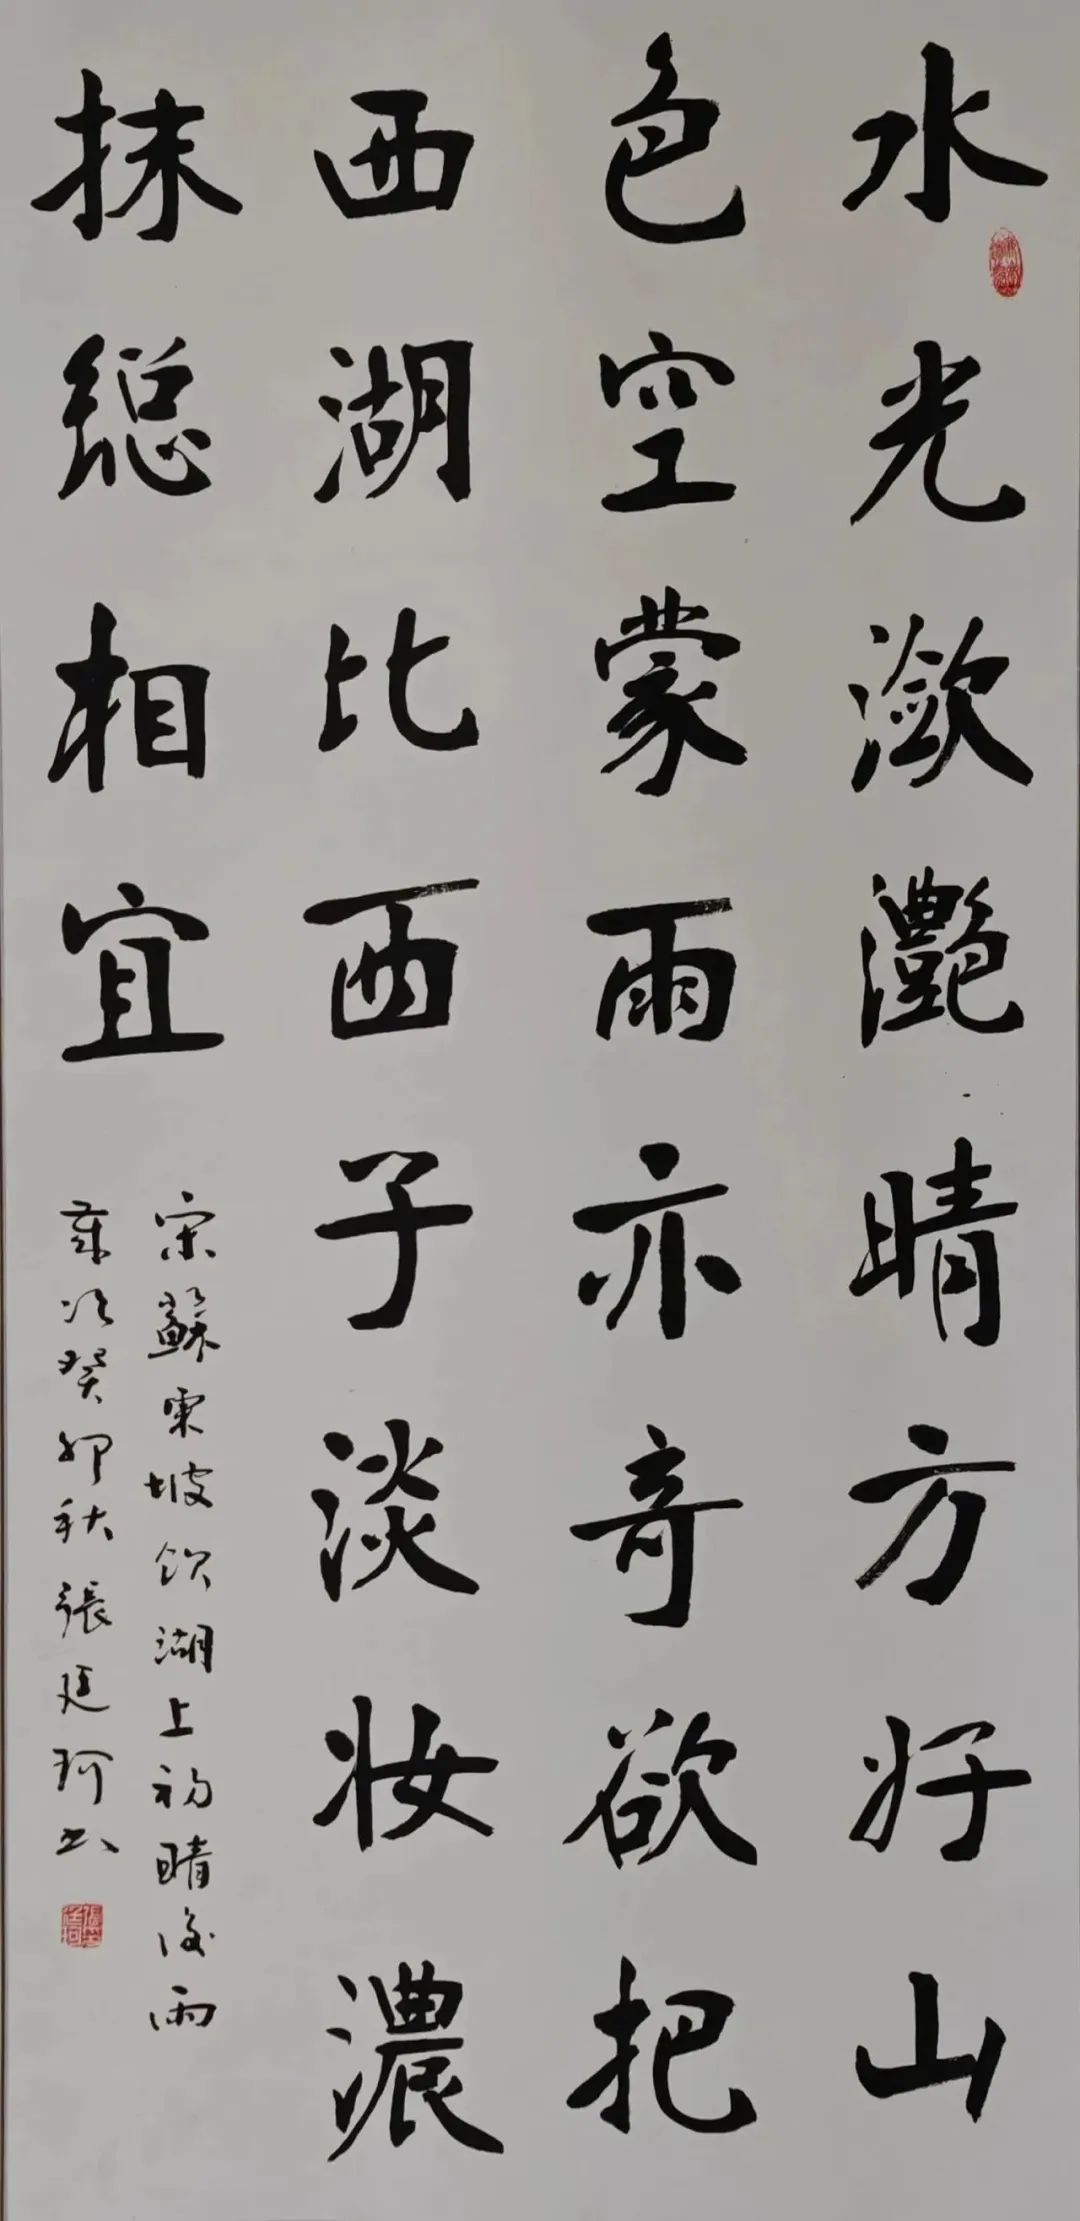 水光潋灔晴方好山
色空蒙雨亦奇欲把
西湖比西子淡妆濃
抹總相宜
宋蘇東坡飲湖上初晴後雨
歲次癸卯秋張廷珂书